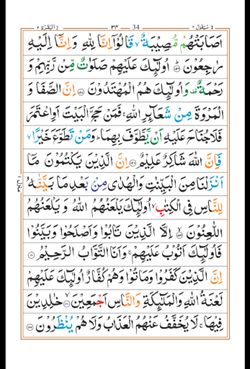 سَيَقُولُ ٢ ٣٣ 34 اَلْبَقَرَة ٢
اَصَابَتْهُمْ مُّصِيْبَةٌ ۙ قَالُوْٓا اِنَّا لِلّٰهِ وَ اِنَّآ اِلَيْهِ
رٰجِعُوْنَ ۞ اُولٰٓئِكَ عَلَيْهِمْ صَلَوٰتٌ مِّنْ رَّبِّهِمْ وَ
رَحْمَةٌ ۟ وَ اُولٰٓئِكَ هُمُ الْمُهْتَدُوْنَ ۞ اِنَّ الصَّفَا وَ
الْمَرْوَةَ مِنْ شَعَآئِرِ اللّٰهِ ۚ فَمَنْ حَجَّ الْبَيْتَ اَوِ اعْتَمَرَ
فَلَا جُنَاحَ عَلَيْهِ اَنْ يَّطَّوَّفَ بِهِمَا ؕ وَ مَنْ تَطَوَّعَ خَيْرًا ۙ
فَاِنَّ اللّٰهَ شَاكِرٌ عَلِيْمٌ ۞ اِنَّ الَّذِيْنَ يَكْتُمُوْنَ مَآ
اَنْزَلْنَا مِنَ الْبَيِّنٰتِ وَ الْهُدٰى مِنْۢ بَعْدِ مَا بَيَّنّٰهُ
لِلنَّاسِ فِي الْكِتٰبِ ۙ اُولٰٓئِكَ يَلْعَنُهُمُ اللّٰهُ وَ يَلْعَنُهُمُ
اللّٰعِنُوْنَ ۞ اِلَّا الَّذِيْنَ تَابُوْا وَ اَصْلَحُوْا وَ بَيَّنُوْا
فَاُولٰٓئِكَ اَتُوْبُ عَلَيْهِمْ ۚ وَ اَنَا التَّوَّابُ الرَّحِيْمُ ۞
اِنَّ الَّذِيْنَ كَفَرُوْا وَ مَاتُوْا وَ هُمْ كُفَّارٌ اُولٰٓئِكَ عَلَيْهِمْ
لَعْنَةُ اللّٰهِ وَ الْمَلٰٓئِكَةِ وَ النَّاسِ اَجْمَعِيْنَ ۞ خٰلِدِيْنَ
فِيْهَا ۚ لَا يُخَفَّفُ عَنْهُمُ الْعَذَابُ وَ لَا هُمْ يُنْظَرُوْنَ ۞